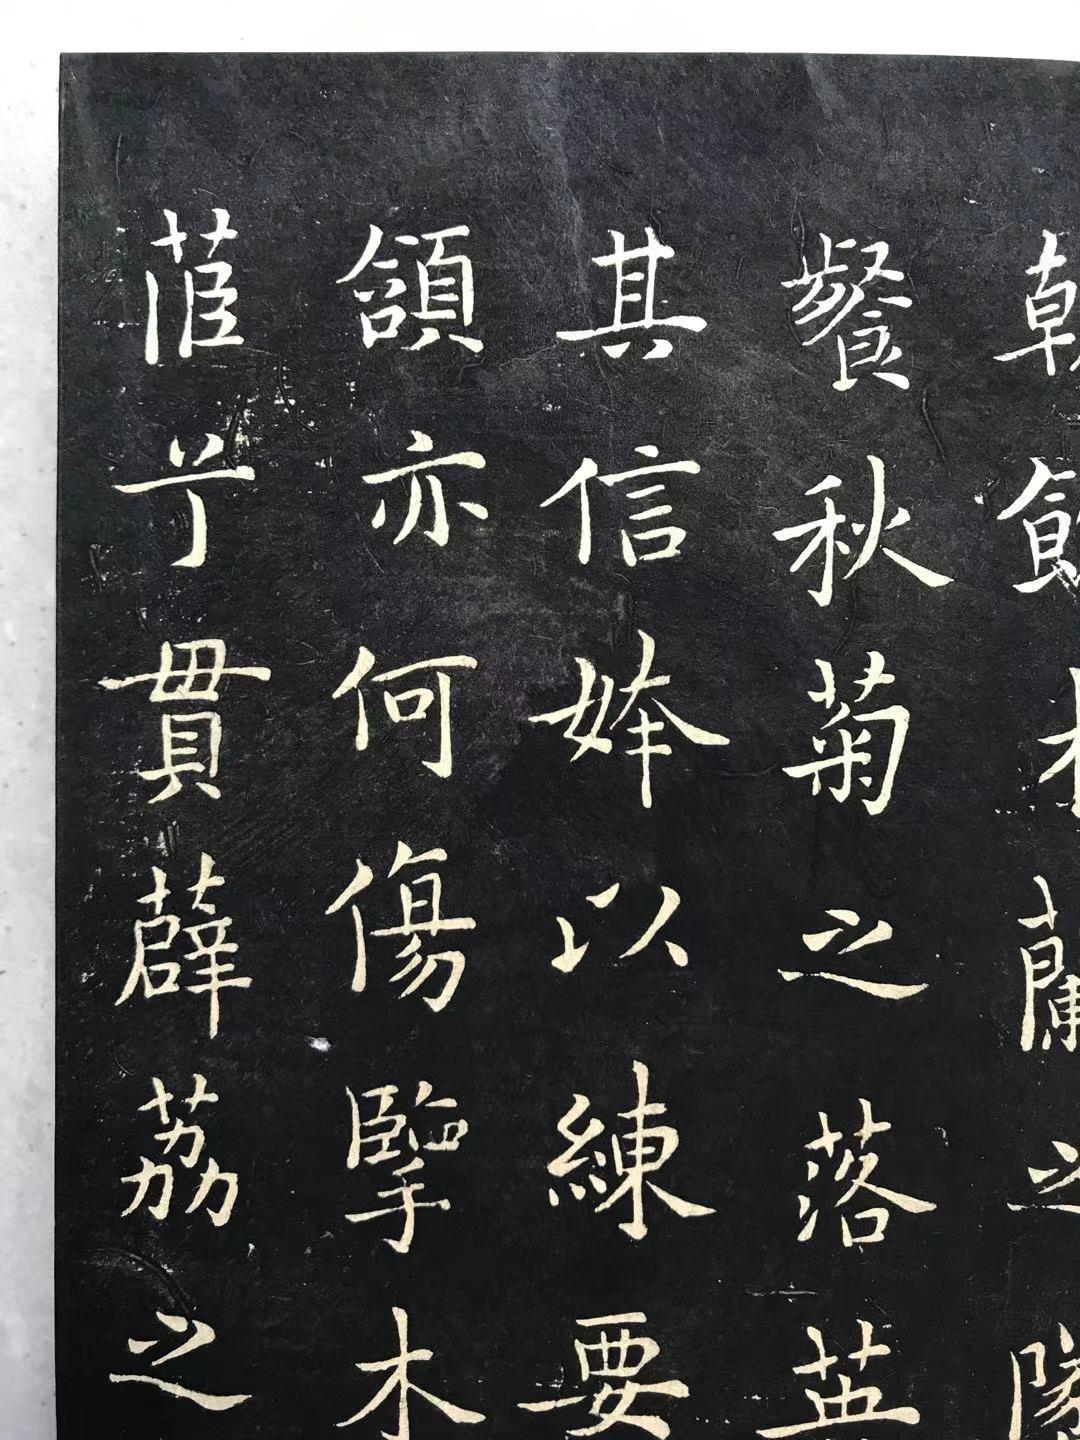 朝飲木蘭之
餐秋菊之落英
其信姱以練要
頷亦何傷擥木
茝兮貫薜荔之